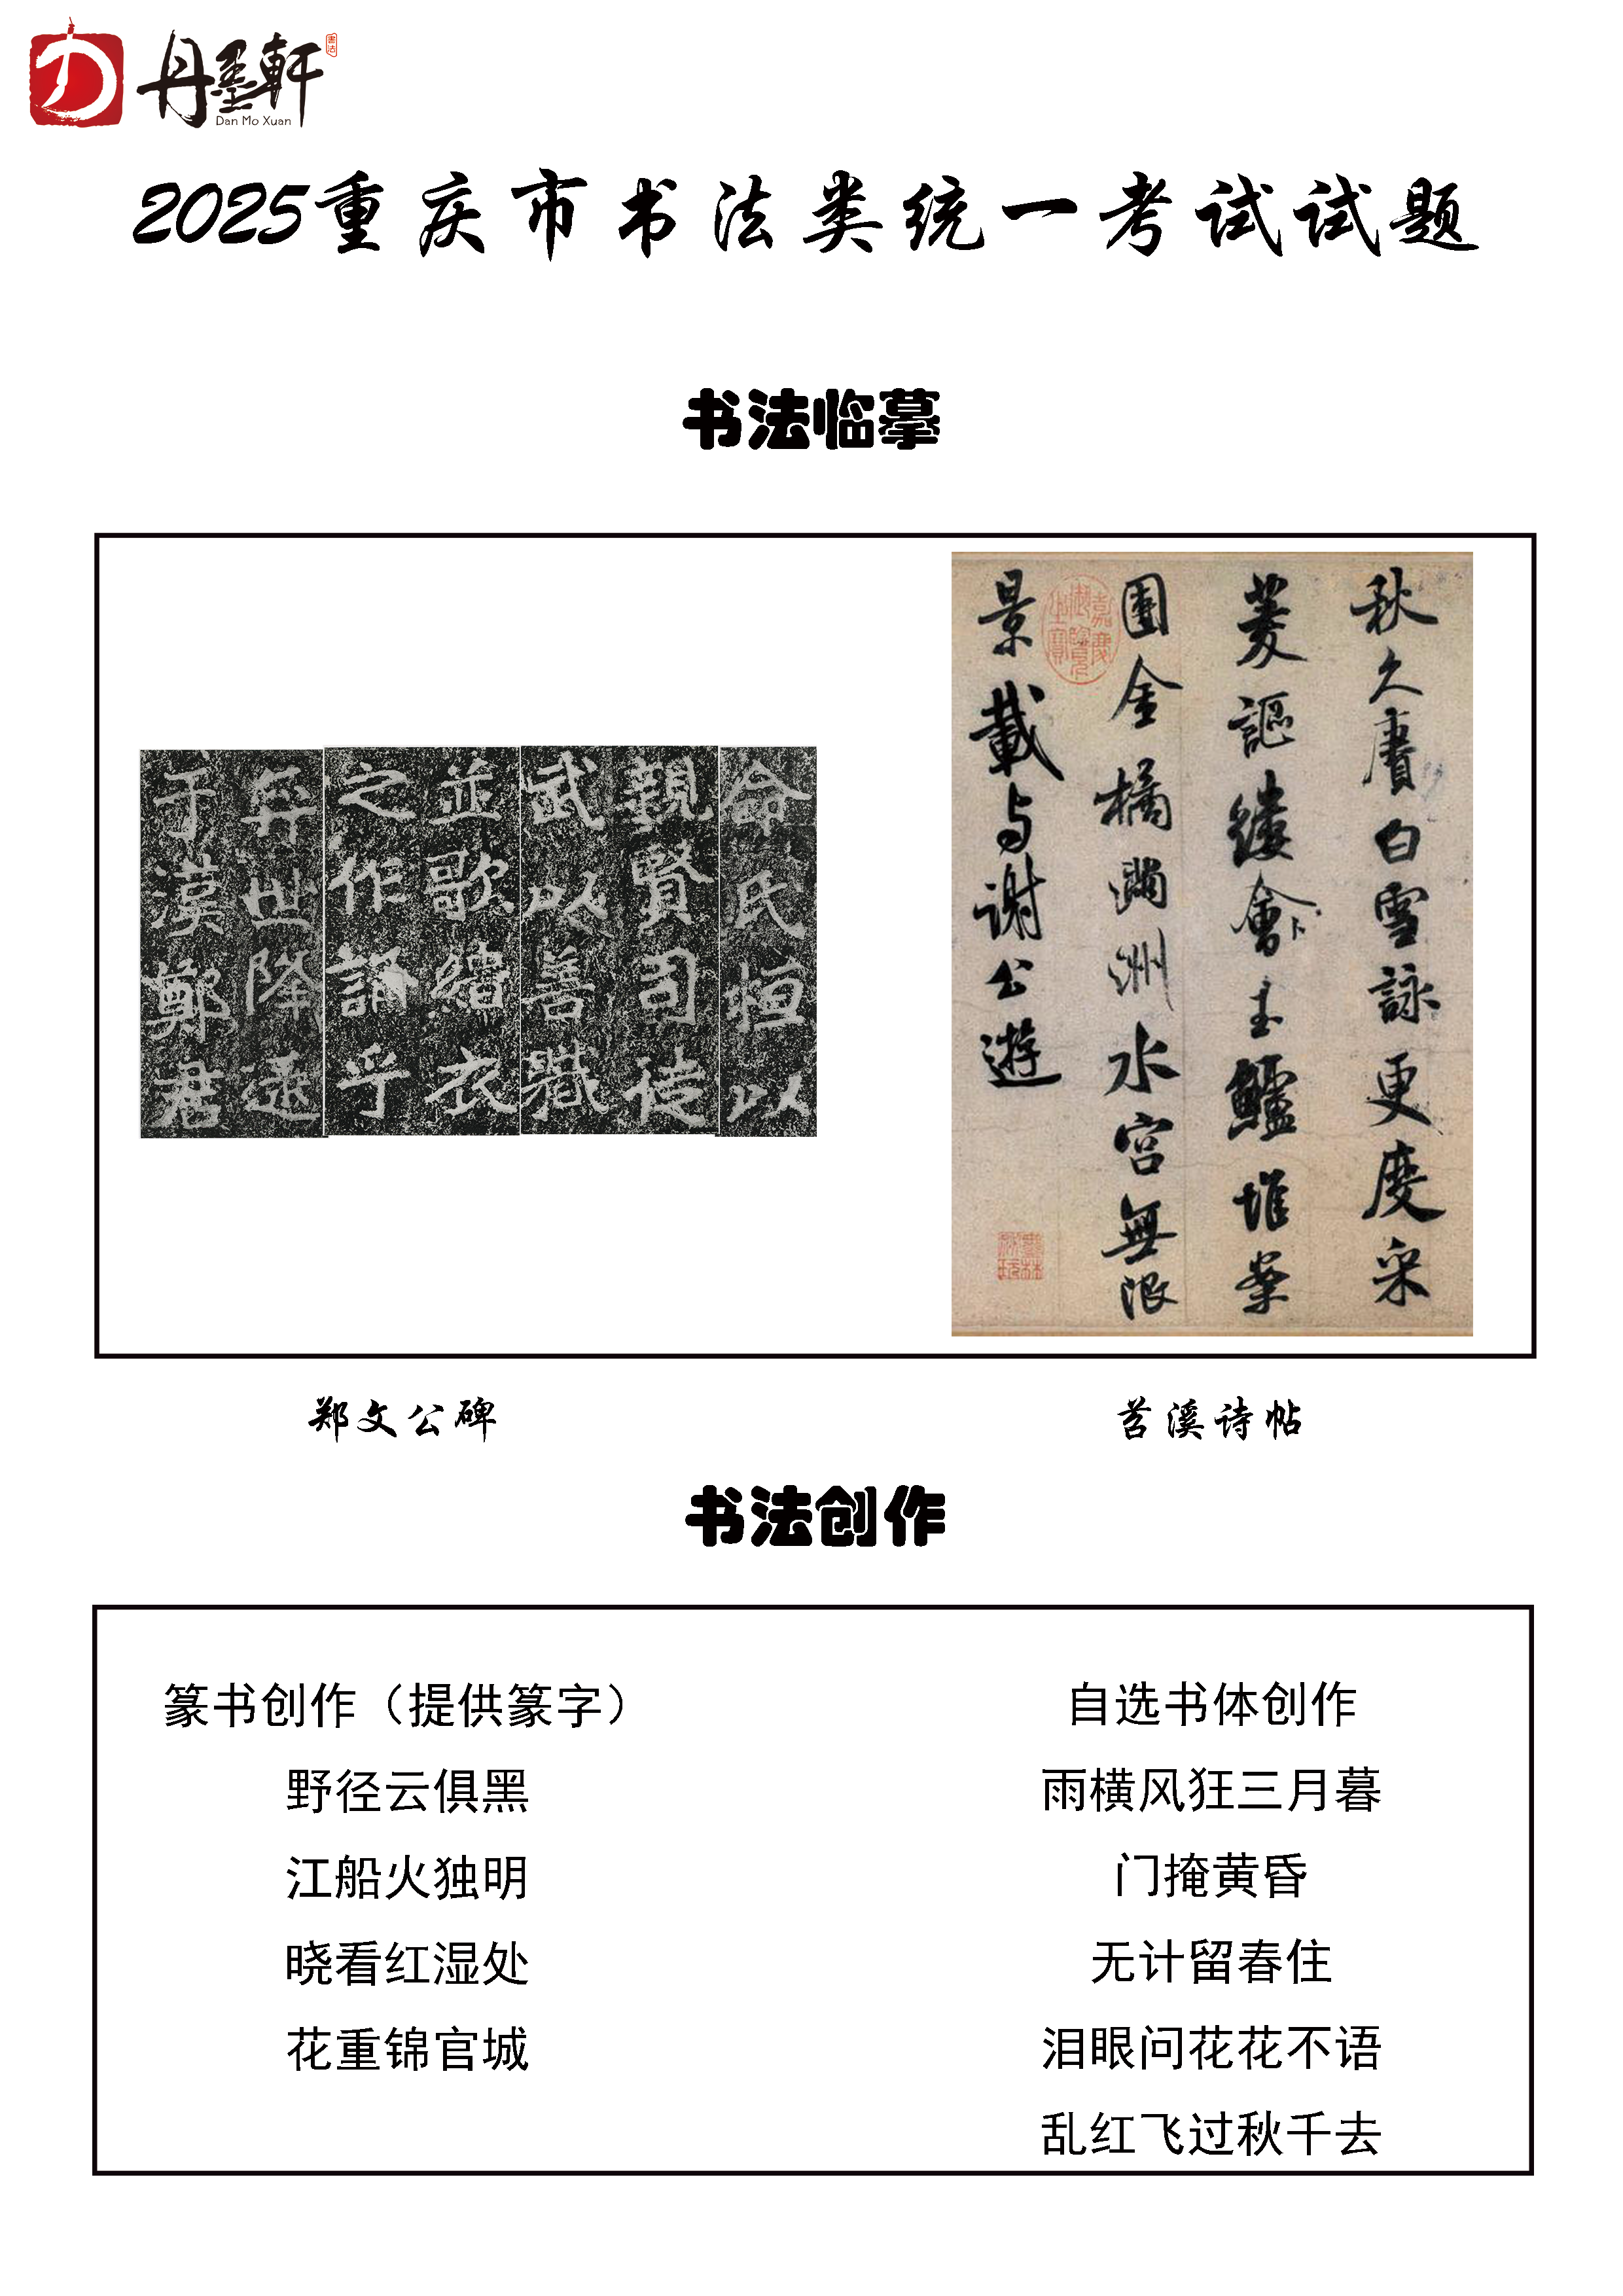 丹墨軒
書法
Dan Mo Xuan
2025重庆市书法类统一考试试题
书法临摹
命氏恒以
親賢司徒
武以善職
並歌緇衣
之作誦乎
奕世降逮
于漢鄭君
秋久賡白雪詠更度采
菱謳縷會玉鱸堆案
團金橘滿洲水宮無限
景載与謝公遊
嘉慶御覽之寶
郑文公碑
苕溪诗帖
书法创作
篆书创作（提供篆字）
野径云俱黑
江船火独明
晓看红湿处
花重锦官城
自选书体创作
雨横风狂三月暮
门掩黄昏
无计留春住
泪眼问花花不语
乱红飞过秋千去